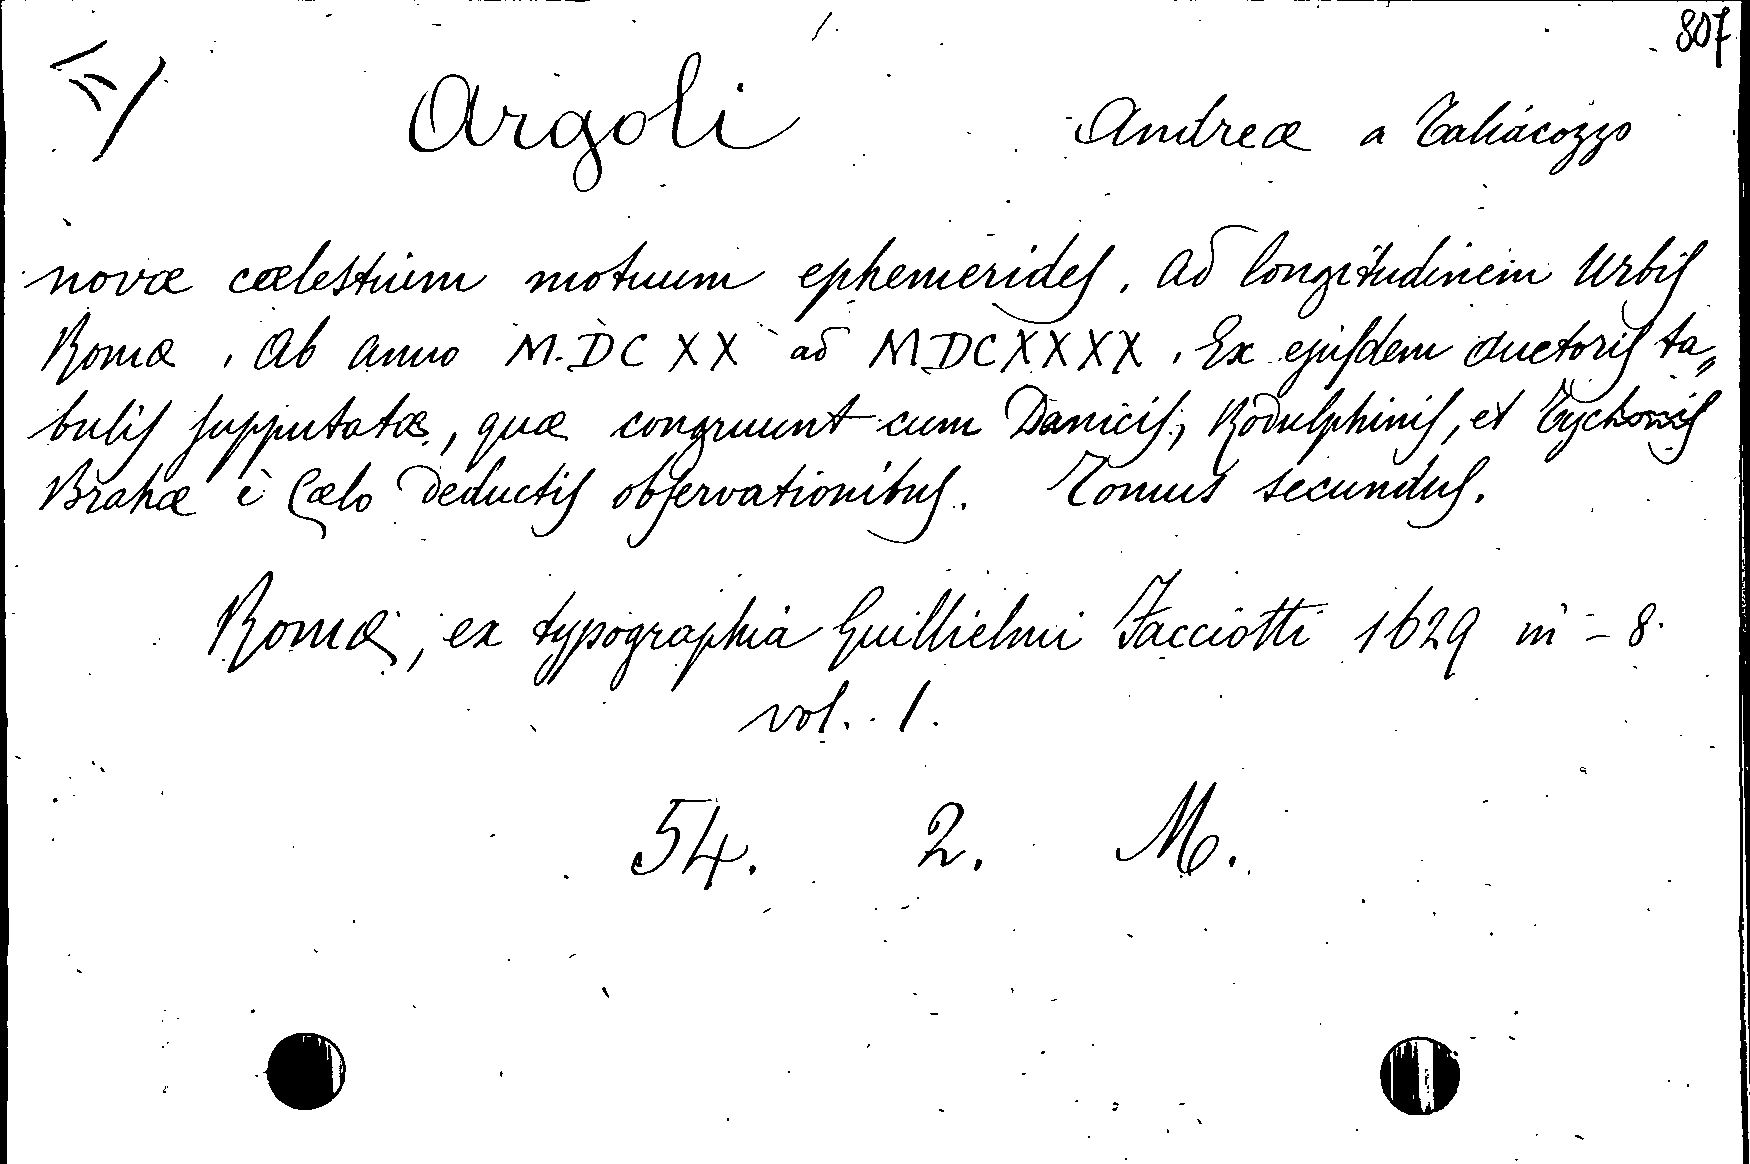 807
Argoli Andreæ a Taliacozzo
novæ cœlestium motuum ephemerides. Ad longitudinem Urbis
Romæ. Ab anno M.DC XX ad MDCXXXX. Ex ejusdem auctoris ta„
bulis supputatæ, quæ congruunt cum Danicis, Rodulphinis, et Tychonis
Brahæ è Cælo deductis observationibus. Tomus secundus.
Romæ, ex typographia Guillielmi Facciotti 1629 in - 8.
vol. 1.
54. 2. M.